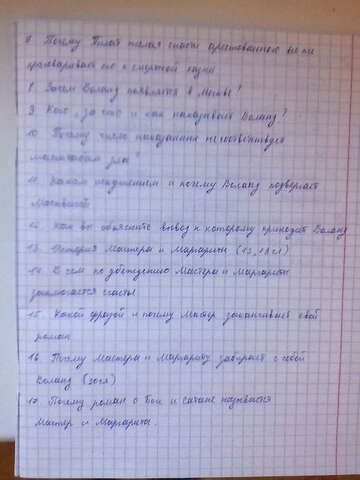 7. Почему Пилат желая спасти арестованного все же
приговаривает его к смертной казни
8. Зачем Воланд появляется в Москве?
9. Кого, за что и как наказывает Воланд?
10. Почему число наказания не соответствует
масштабам зла?
11. Каким испытаниям и почему Воланд подвергает
Москвичей
12. Как вы объясните вывод к которому приходит Воланд
13. История Мастера и Маргариты (13, 18 гл)
14. В чем по убеждению Мастера и Маргариты
заключается счастье
15. Какой фразой и почему Мастер заканчивает свой
роман
16. Почему Мастера и Маргариту забирает с собой
Воланд
17. Почему роман о Боге и сатане называется
Мастер и Маргарита.